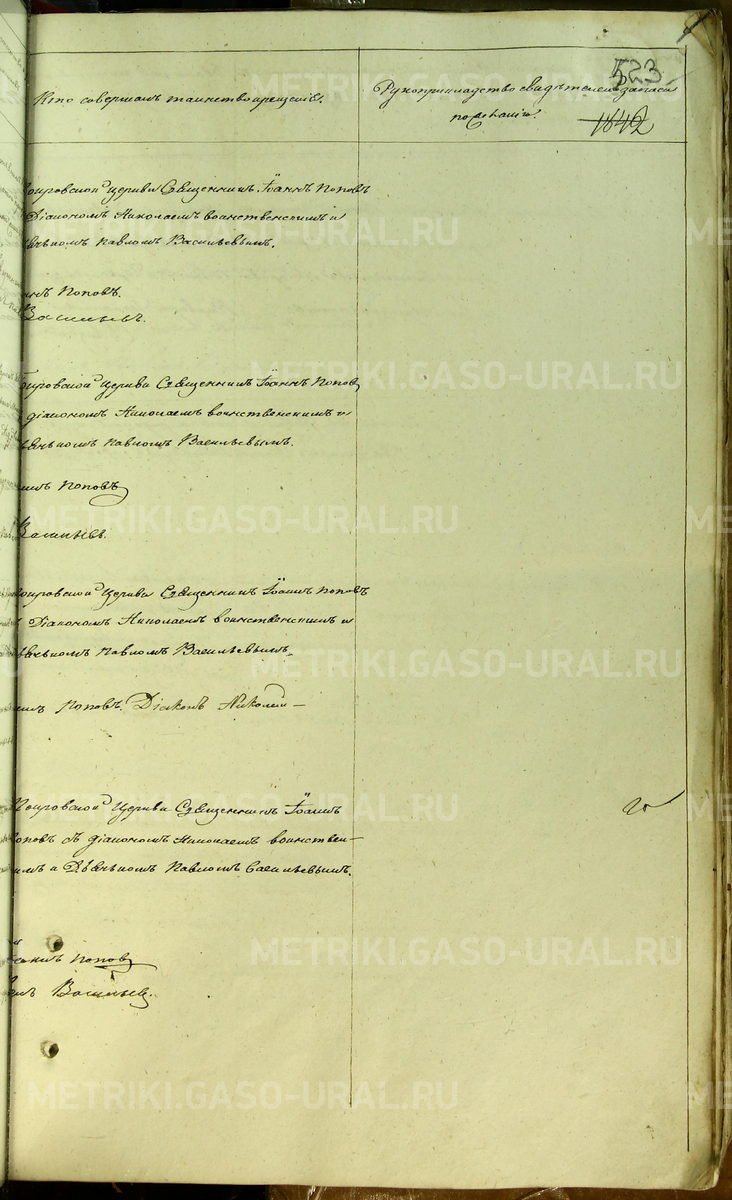 523
1842
Кто совершалъ таинство крещенія.
Рукоприкладство свидѣтелей записи
по желанію.
Покровской церкви Священникъ Іоаннъ Поповъ
Діакономъ Николаемъ Воинственскимъ и
Дьячкомъ Павломъ Васильевымъ.
Поповъ.
Васильевъ.
Покровской церкви Священникъ Іоаннъ Поповъ
діакономъ Николаемъ Воинственскимъ и
Дьячкомъ Павломъ Васильевымъ.
Поповъ
Васильевъ.
Покровской Церкви Священникъ Іоаннъ Поповъ
Діакономъ Николаемъ Воинственскимъ и
Дьячкомъ Павломъ Васильевымъ.
Поповъ. Діаконъ Николай
Покровской Церкви Священникъ Іоаннъ
Поповъ съ діакономъ Николаемъ Воинствен-
скимъ и Дьячкомъ Павломъ Васильевымъ.
Поповъ
Васильевъ.
METRIKI.GASO-URAL.RU